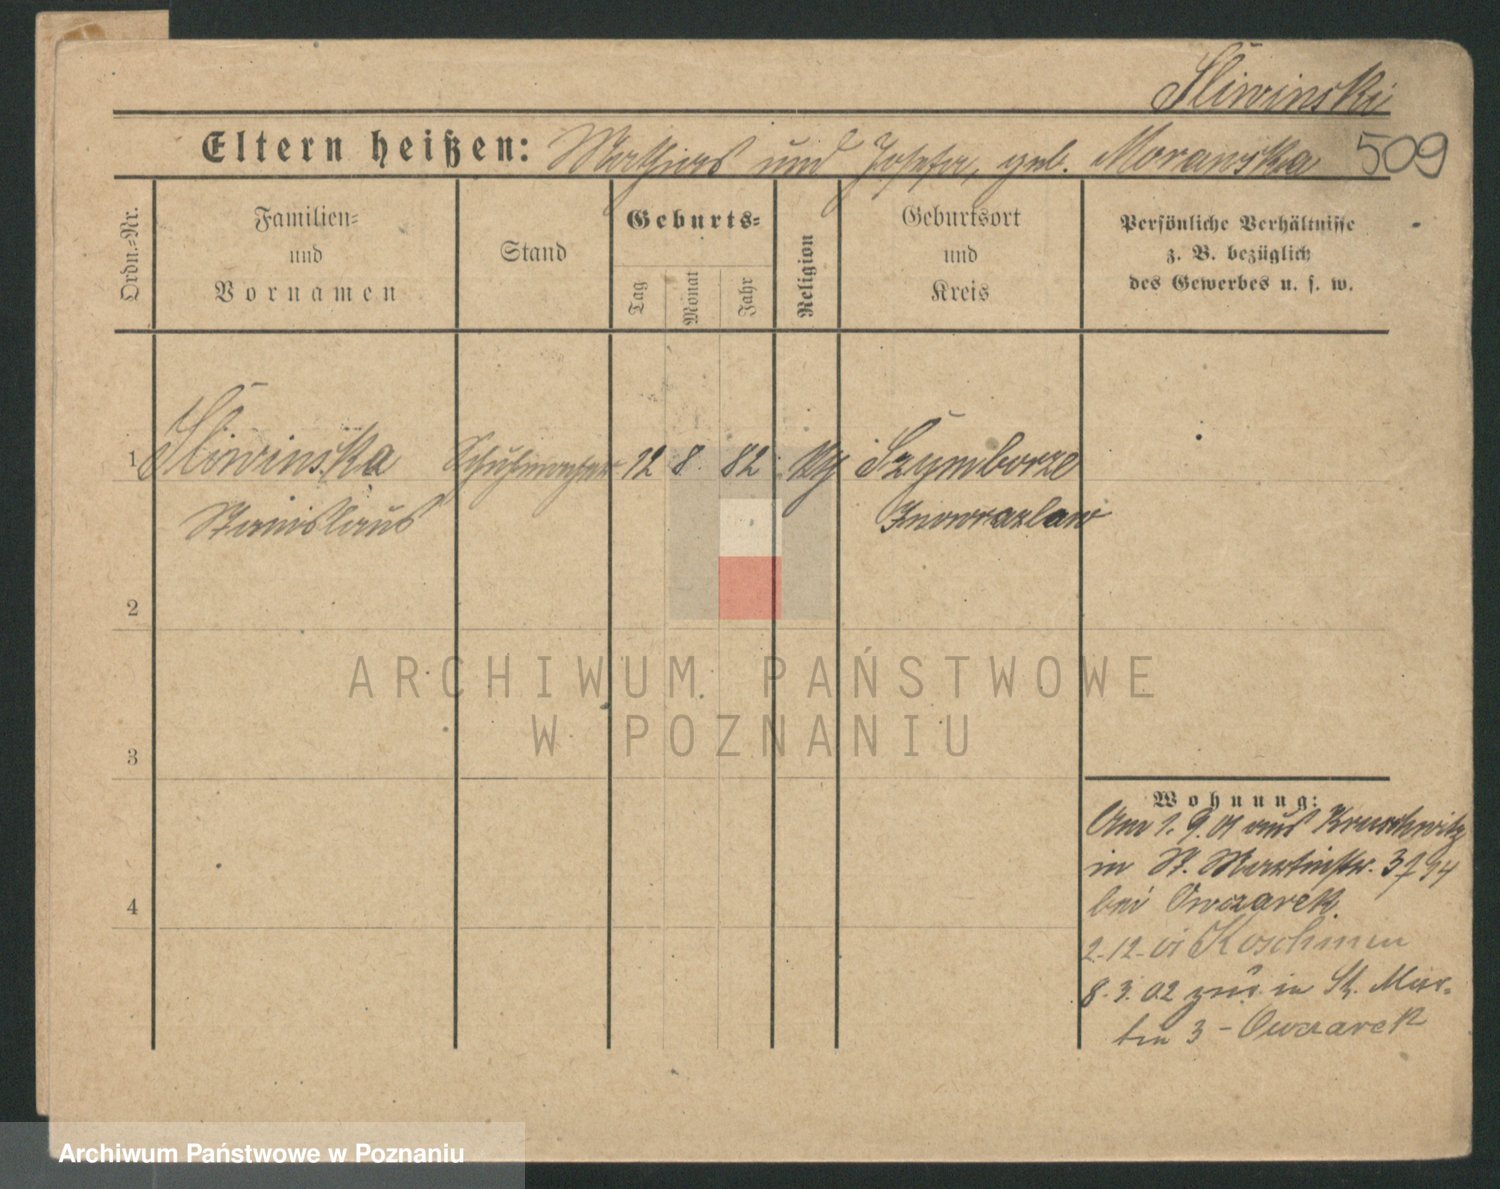 Śliwinski
Eltern heißen: Mathias und Josefa, geb. Morawska 509
Ordn.=Nr.
Familien=
und
Vornamen
Stand
Geburts=
Tag
Monat
Jahr
Religion
Geburtsort
und
Kreis
Persönliche Verhältnisse
z. B. bezüglich
des Gewerbes u. s. w.
1 Śliwinska Schuhmacher 12 8 82 Szymborze
Stanislaus Inowrazlaw
2
3
4
Wohnung:
Am 1.9.01 aus Kruschwitz
in St. Martinstr. 3
bei Owczarek
2-12-01 Koschmin
8.3.02 zur. in St. Mar-
tin 3 - Owczarek
ARCHIWUM PAŃSTWOWE
W POZNANIU
Archiwum Państwowe w Poznaniu